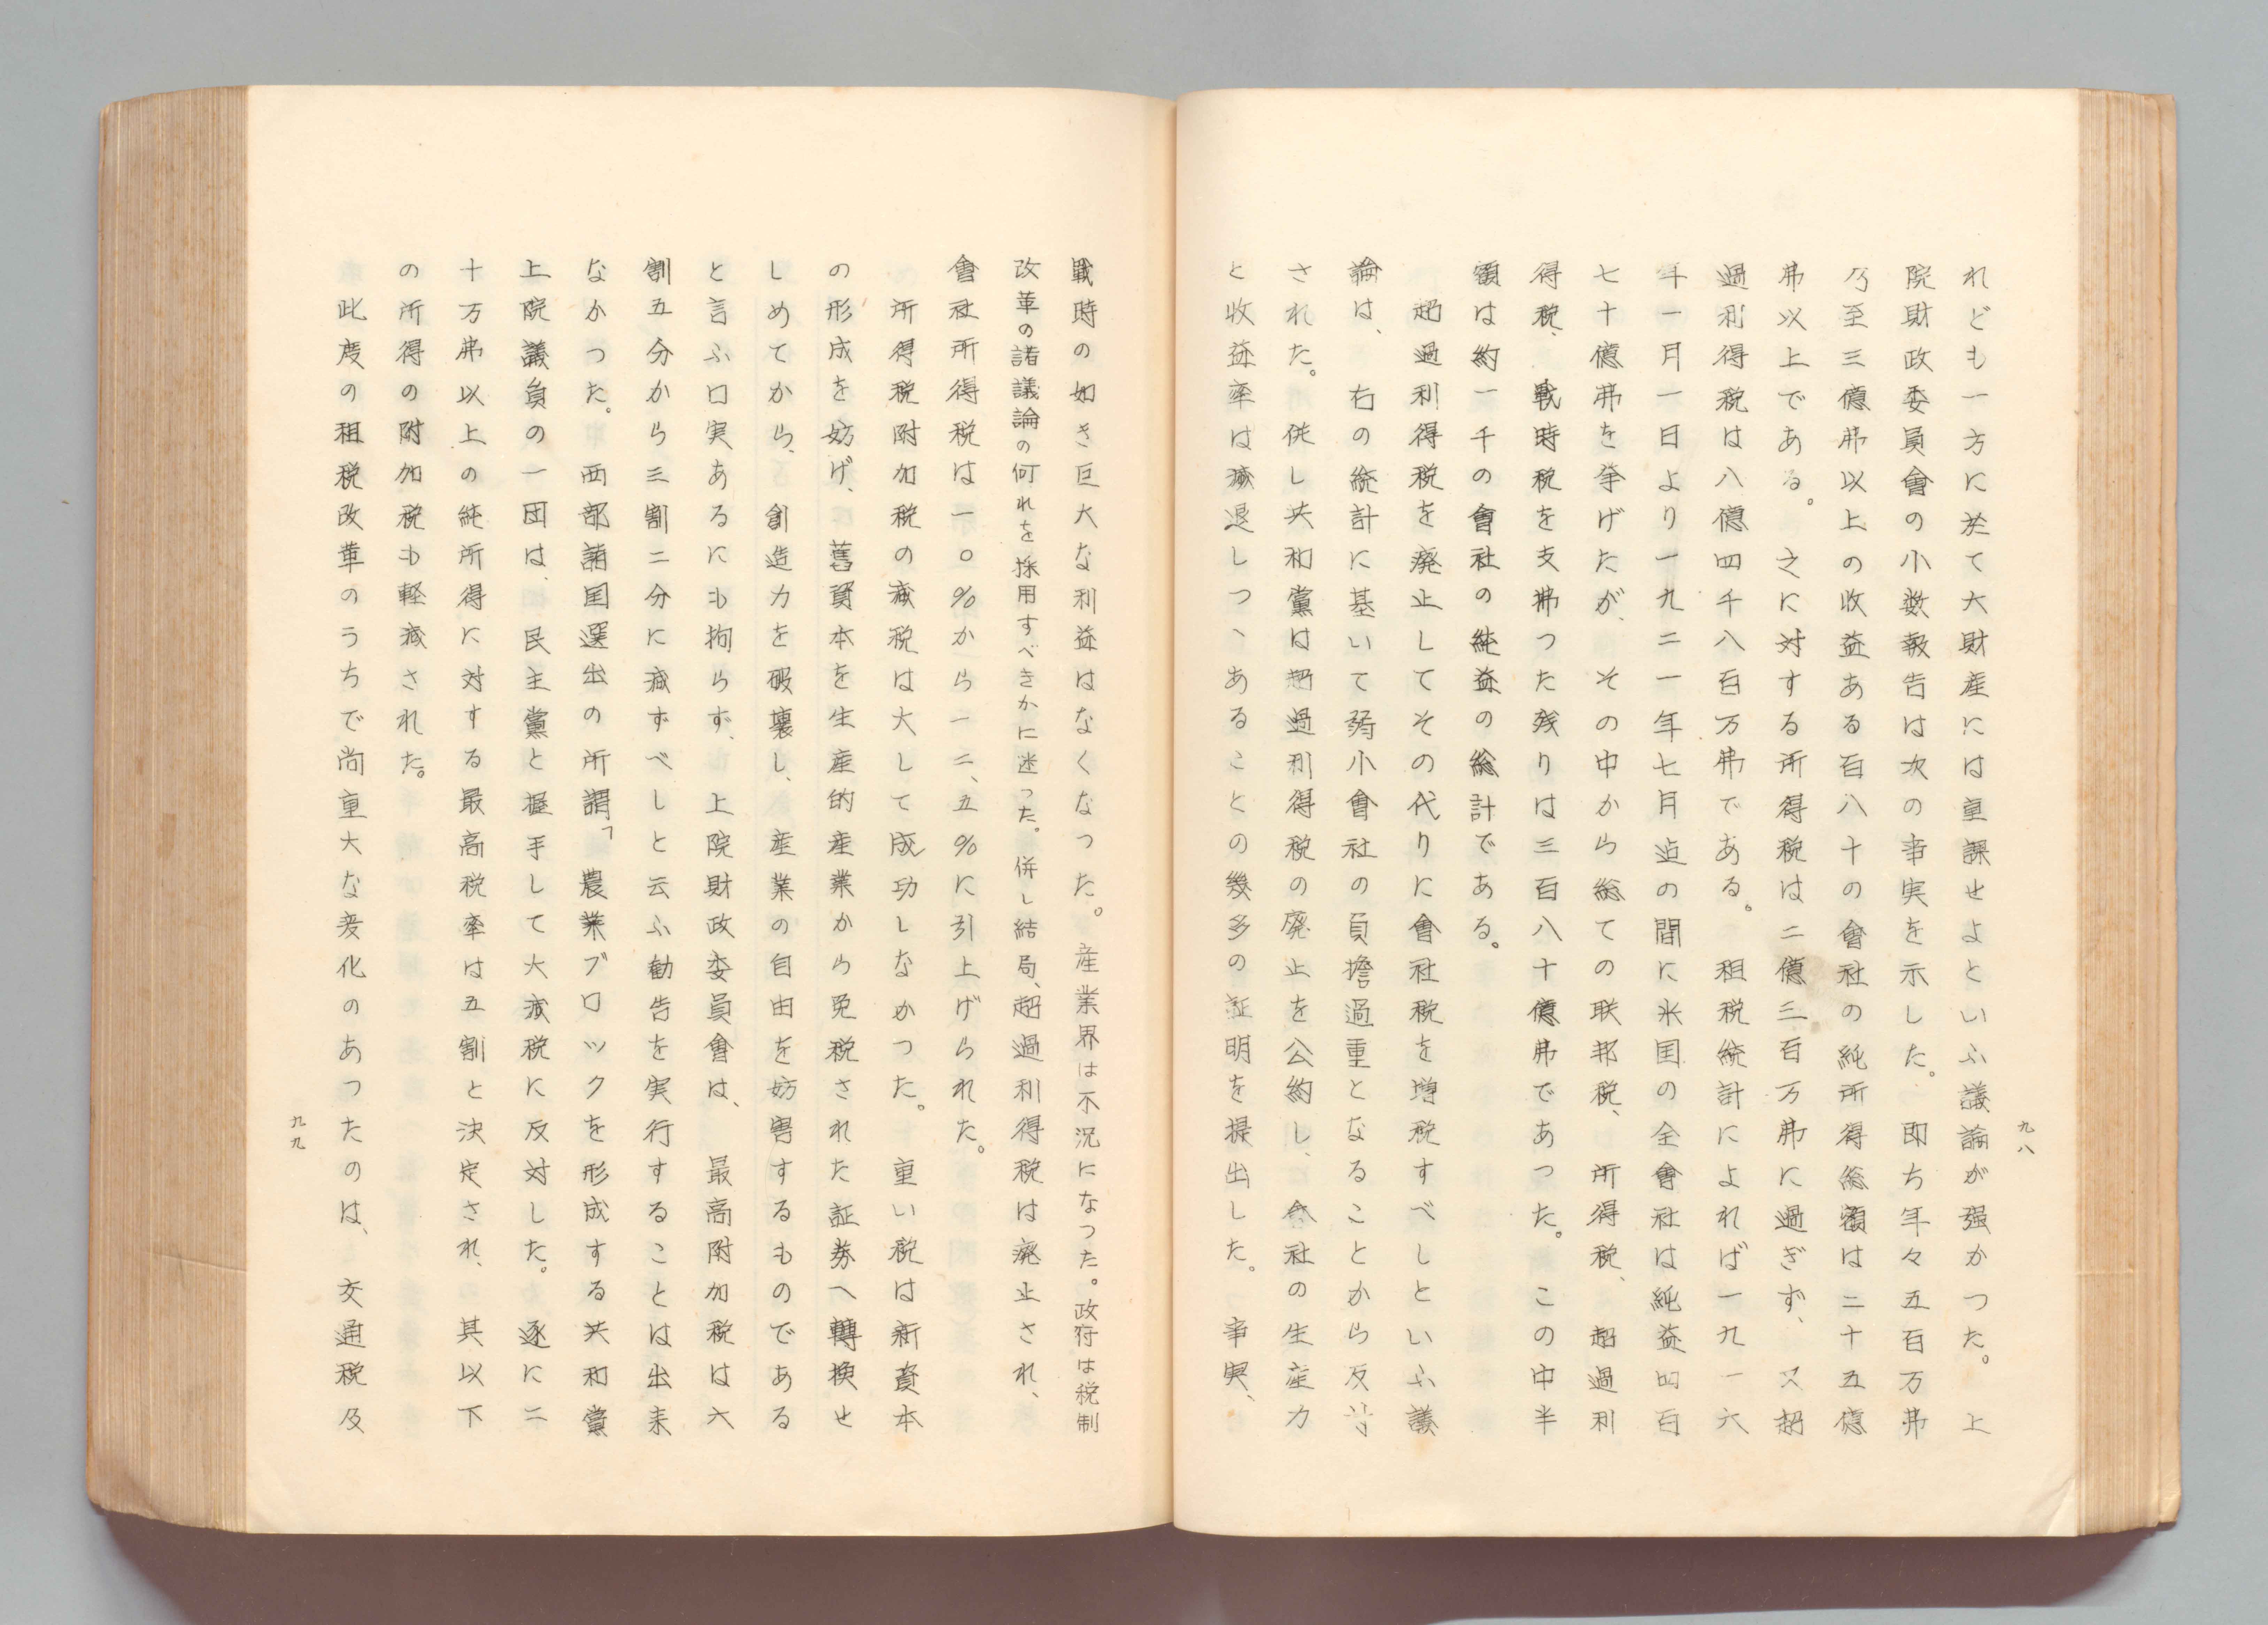 九八
れども一方に於て大財産には重課せよといふ議論が强かつた。上
院財政委員會の小数報告は次の事実を示した。即ち年々五百万弗
乃至三億弗以上の收益ある百八十の會社の純所得総額は二十五億
弗以上である。之に対する所得税は二億三百万弗に過ぎず、又超
過利得税は八億四千八百万弗である。租税統計によれば一九一六
年一月一日より一九二一年七月迠の間に米国の全會社は純益四百
七十億弗を挙げたが、その中から総ての联邦税、所得税、超過利
得税、戦時税を支拂つた残りは三百八十億弗であつた。この中半
額は約一千の會社の純益の総計である。
超過利得税を廃止してその代りに會社税を増税すべしといふ議
論は、右の統計に基いて弱小會社の負擔過重となることから反対
された。併し共和黨は超過利得税の廃止を公約し、会社の生産力
と收益率は減退しつヽあることの幾多の証明を提出した。事実、
戰時の如き巨大な利益はなくなつた。産業界は不況になつた。政府は税制
改革の諸議論の何れを採用すべきかに迷つた。併し結局、超過利得税は廃止され、
會社所得税は一〇％から一二、五％に引上げられた。
所得税附加税の減税は大して成功しなかつた。重い税は新資本
の形成を妨げ、舊資本を生産的産業から免税された証券へ轉換せ
しめてから、創造力を破壊し、産業の自由を妨害するものである
と言ふ口実あるにも拘らず、上院財政委員會は、最高附加税は六
割五分から三割二分に減ずべしと云ふ勧告を実行することは出来
なかつた。西部諸国選出の所謂「農業ブロックを形成する共和黨
上院議員の一団は、民主黨と握手して大減税に反対した。逐に二
十万弗以上の純所得に対する最高税率は五割と決定され、其以下
の所得の附加税も軽減された。
此度の租税改革のうちで尚重大な変化のあつたのは、交通税及
九九